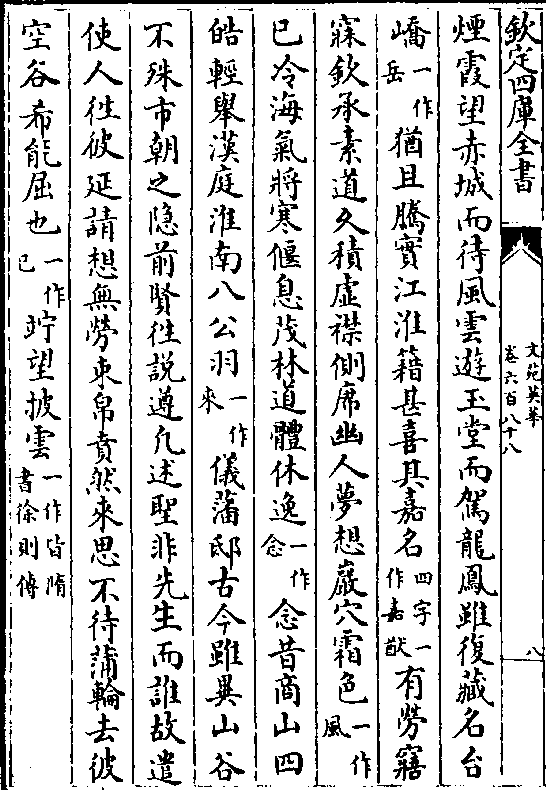 欽定四庫全書
文苑英華
卷六百八十八
八
煙霞望赤城而待風雲遊玉堂而駕龍鳳雖復藏名台
嶠一作岳猶且騰實江淮籍甚喜具嘉名四字一作嘉猷有勞寤
寐欽承素道久積虛襟側席幽人夢想巖穴霜色一作風
已冷海氣將寒偃息茂林道體休逸一作念念昔商山四
皓輕舉漢庭淮南八公羽一作來儀藩邸古今雖異山谷
不殊市朝之隐前賢往説遵凡述聖非先生而誰故遣
使人往彼延請想無勞束帛賁然來思不待蒲輪去彼
空谷希能屈也一作已竚望披雲一作皆隋書徐則傳